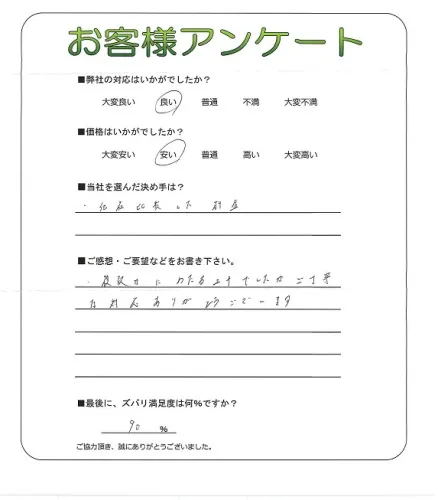 お客様アンケート
■弊社の対応はいかがでしたか？
大変良い 良い 普通 不満 大変不満
■価格はいかがでしたか？
大変安い 安い 普通 高い 大変高い
■当社を選んだ決め手は？
・他店比較した
■ご感想・ご要望などをお書き下さい。
にわたる工事でしたがご丁寧
な対応ありがとうございます
■最後に、ズバリ満足度は何%ですか？
90 %
ご協力頂き、誠にありがとうございました。